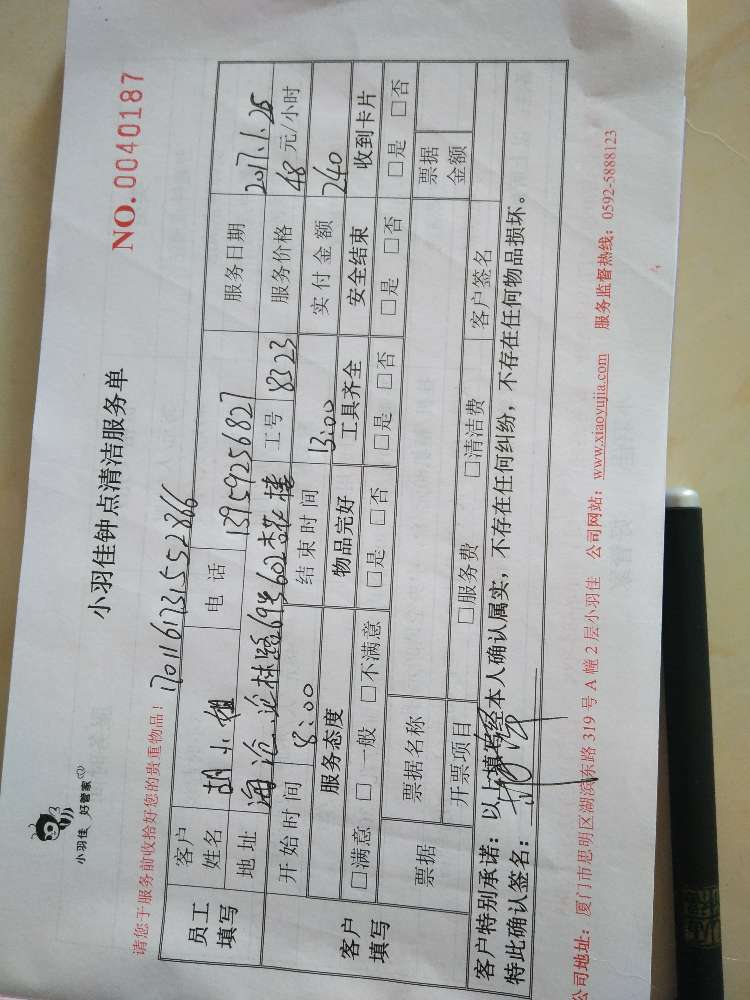 小羽佳 好管家
小羽佳钟点清洁服务单
NO. 0040187
请您于服务前收拾好您的贵重物品！ 1701161731552866
员工填写 客户姓名 胡小姐 电话 13959256827 服务日期 2017.1.25
地址 海沧 沧林路 602 工号 8323 服务价格 48 元/小时
开始时间 8:00 结束时间 13:00 实付金额 240
客户填写 服务态度 物品完好 工具齐全 安全结束 收到卡片
□满意 □一般 □不满意 □是 □否 □是 □否 □是 □否 □是 □否
票据 票据名称 票据金额
开票项目 □服务费 □清洁费 客户签名
客户特别承诺：以上填写经本人确认属实，不存在任何纠纷，不存在任何物品损坏。
特此确认签名：
公司地址：厦门市思明区湖滨东路 319 号 A 幢 2 层小羽佳 公司网站：www.xiaoyujia.com 服务监督热线：0592-5888123